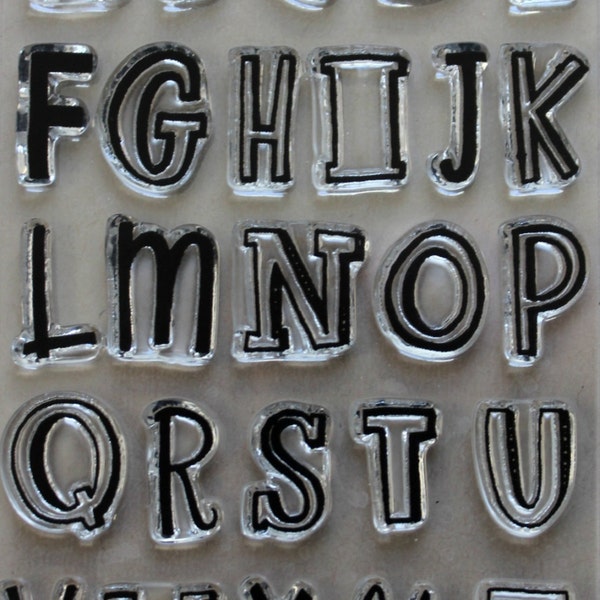 FGHIJK
LMNOP
QRSTU